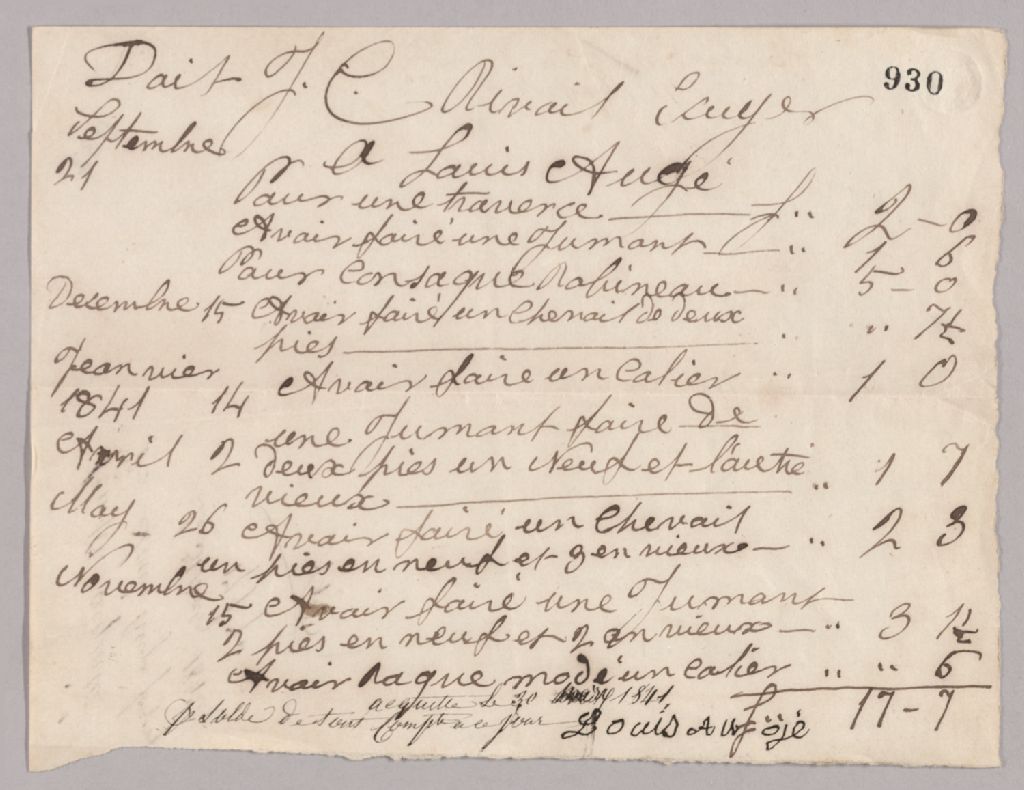 Dait J. C. Rivait Ecuyer 930
Septembre A Louis Augé
21 Pour une traverce £ ,, 2 - 0
Avair fairé une Jumant £ ,, 1 6
Paur Consaque Robineau ,, 5 - 0
Desembre 15 Avair fairé un Chevait de deux
pies ,, ,, 7½
Jeanvier
1841 14 Avair faire un Calier ,, 1 0
une Jumant faire de
Avril 2 deux pies un Neuf et l'autre ,, 1 7
vieux
May - 26 Avair fairé un Chevait
un pies en neuf et 3 en vieux ,, 2 3
Novembre
15 Avair fairé une Jumant
2 piés en neuf et 2 en vieux ,, 3 1½
Avair Raque modé un Calier ,, ,, 6
£ 17 - 7
acquitté le 30 1841
Pr Solde de tout Compte a ce jour Louis Aufojé